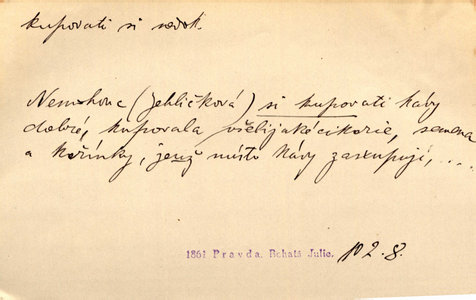 kupovati si nedok.
Nemohouc (Jehličková) si kupovati kávy
dobré, kupovala všelijaké cikorie, semena
a kořínky, jenž místo kávy zastupují, ....
1861 Pravda. Bohatá Julie. p 2. 8.